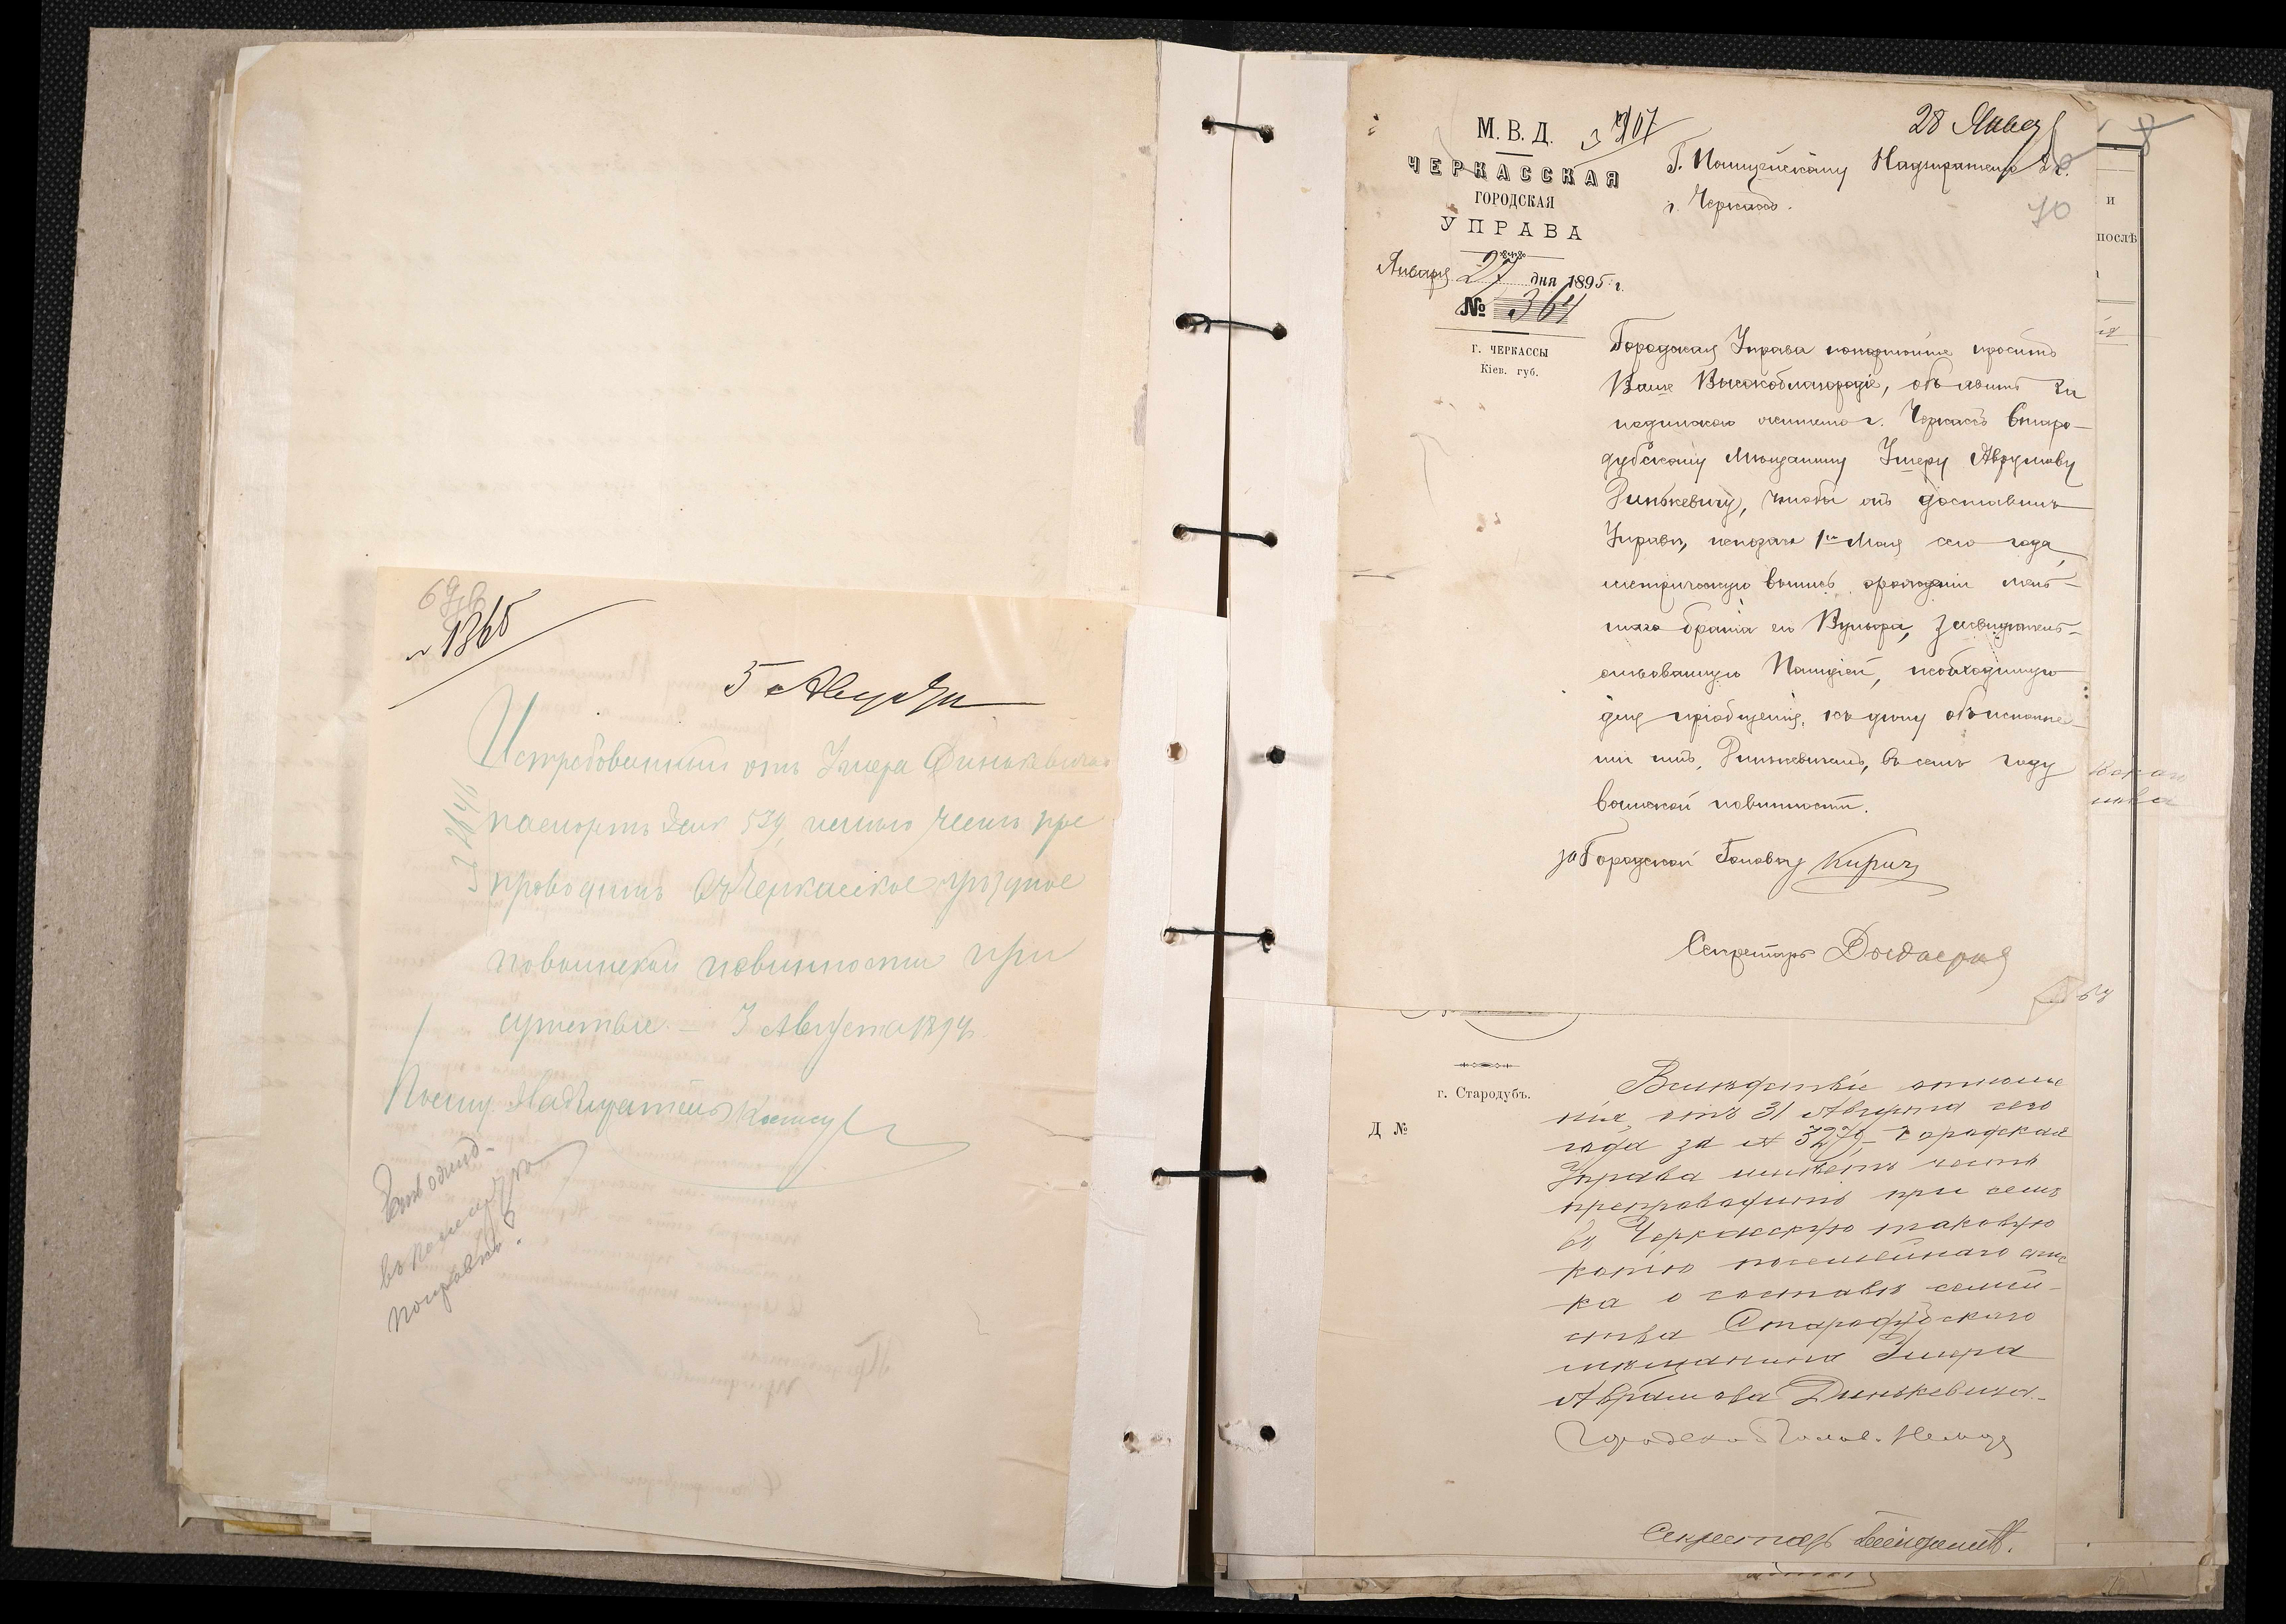 № 1365
5 Августа
Истребованный отъ Умера Динькевича
паспортъ за № 539, имѣю честь пре
проводить въ Черкасское уѣздное
по воинской повинности при
сутствіе. — 3 Августа 1894 г.
Надзиратель
въ
М. В. Д.
ЧЕРКАССКАЯ
ГОРОДСКАЯ
УПРАВА
Января 27 дня 1895 г.
№ 364
г. ЧЕРКАССЫ
Кіев. губ.
28 Января
Г. Полицейскому Надзирателю
г. Черкассъ.
70
Городская Управа покорнѣйше проситъ
Ваше Высокоблагородіе, объявить
подпискою жителю г. Черкассъ Старо-
дубскому мѣщанину Умеру Аврумову
Динькевичу, чтобы онъ доставилъ
Управѣ, не позже 1го Мая сего года,
метрическую выпись о рожденіи мень-
шаго брата его Вульфа, засвидѣтель-
ствованную Полиціей, необходимую
для пріобщенія, къ дѣлу объ исполне-
ніи имъ, Динькевичемъ, въ семъ году
воинской повинности.
за Городской Голова
Секретарь
и
послѣ
г. Стародубъ.
Д №
Вслѣдствіе отноше
нія, отъ 31 Августа сего
года за № 3270 Городская
Управа имѣетъ честь
препроводить при семъ
въ Черкасскую таковую
копію посемейнаго спис
ка о составѣ семей-
ства Стародубскаго
мѣщанина Умера
Абрамова Динькевича.
Городской Голова
Секретарь